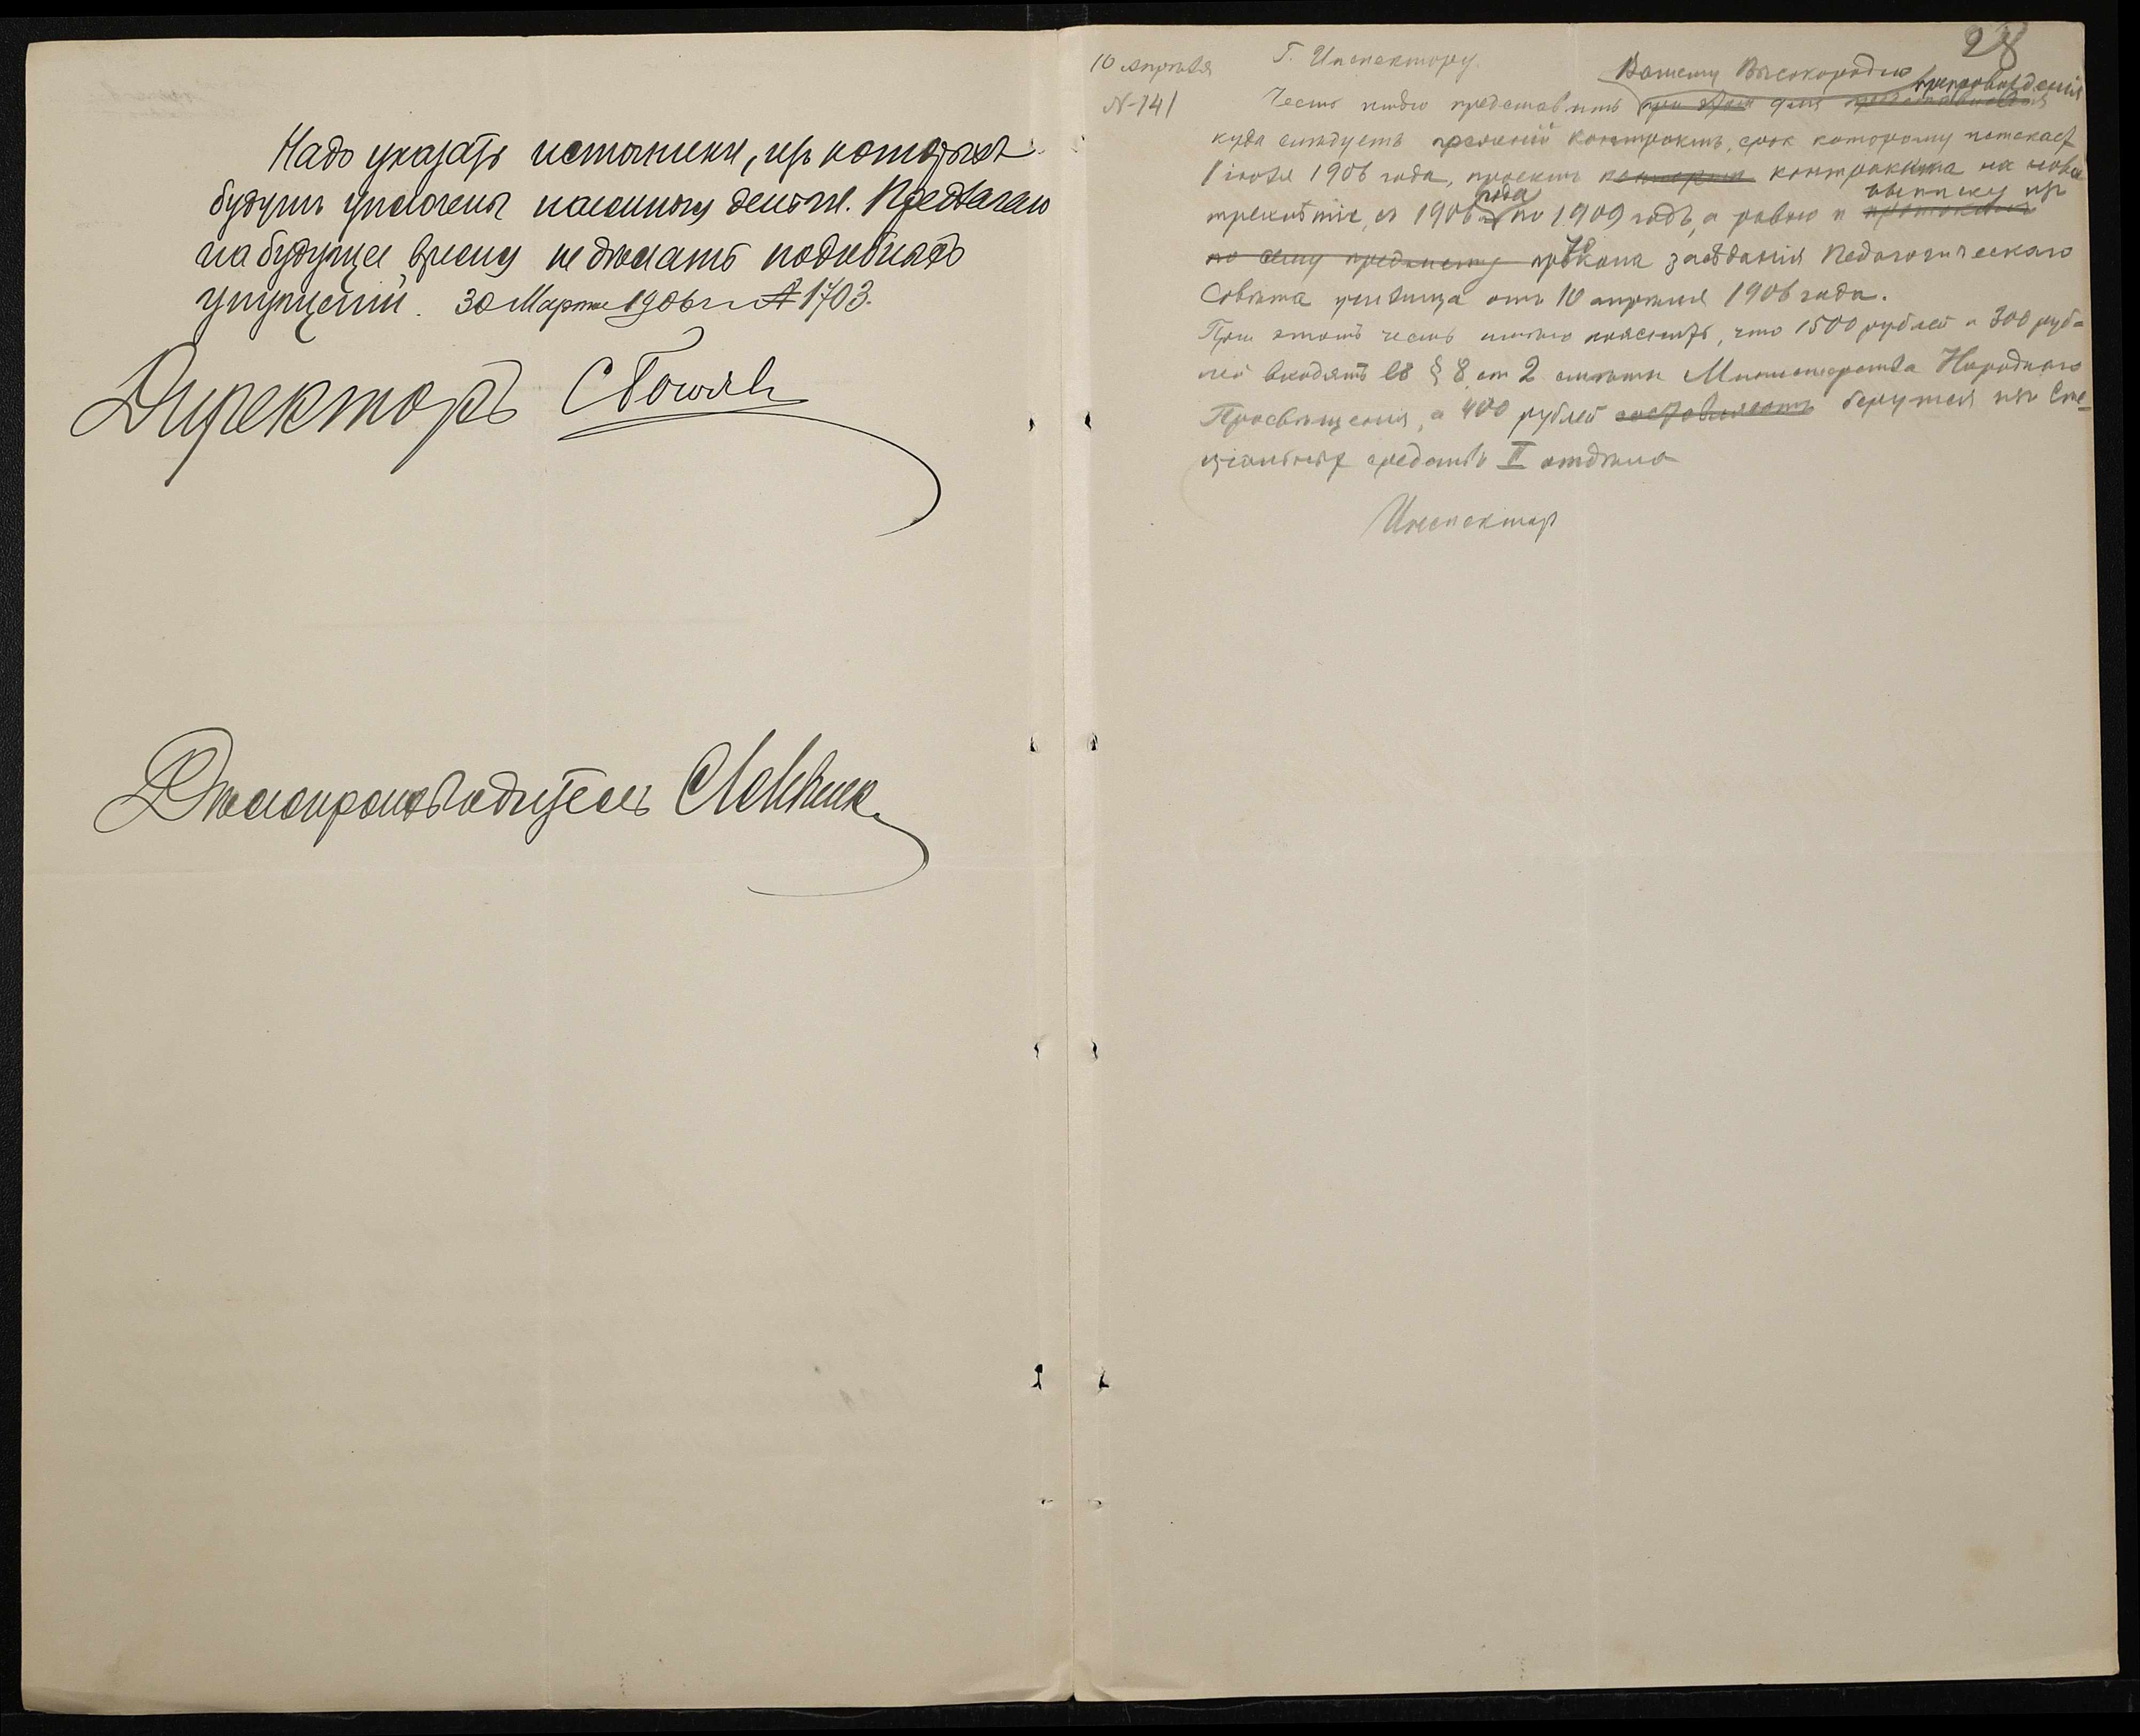 Надо указать источники, изъ которыхъ
будутъ уплочены наемныя деньги. Предлагаю
на будущее время не дѣлать подобныхъ
упущеній. 30 Марта 1906 г. № 1703.
Директоръ
Дѣлопроизводитель
28
10 апрѣля
№ 141
Г. Инспектору.
Вашему Высокородію препровожденія
Честь имѣю представить при этомъ для
куда слѣдуетъ прежній контрактъ, срокъ которому истекаетъ
1 іюля 1906 года, проектъ контракта на новое
трехлѣтіе, съ 1906 года по 1909 годъ, а равно и выписку изъ
по сему предмету пр-кола засѣданія Педагогическаго
Совѣта училища отъ 10 апрѣля 1906 года.
При этомъ честь имѣю пояснить, что 1500 рублей и 300 руб-
лей входятъ въ § 8, ст 2 смѣты Министерства Народнаго
Просвѣщенія, а 400 рублей составляютъ берутся изъ Спе-
ціальныхъ средствъ II отдѣла
Инспекторъ